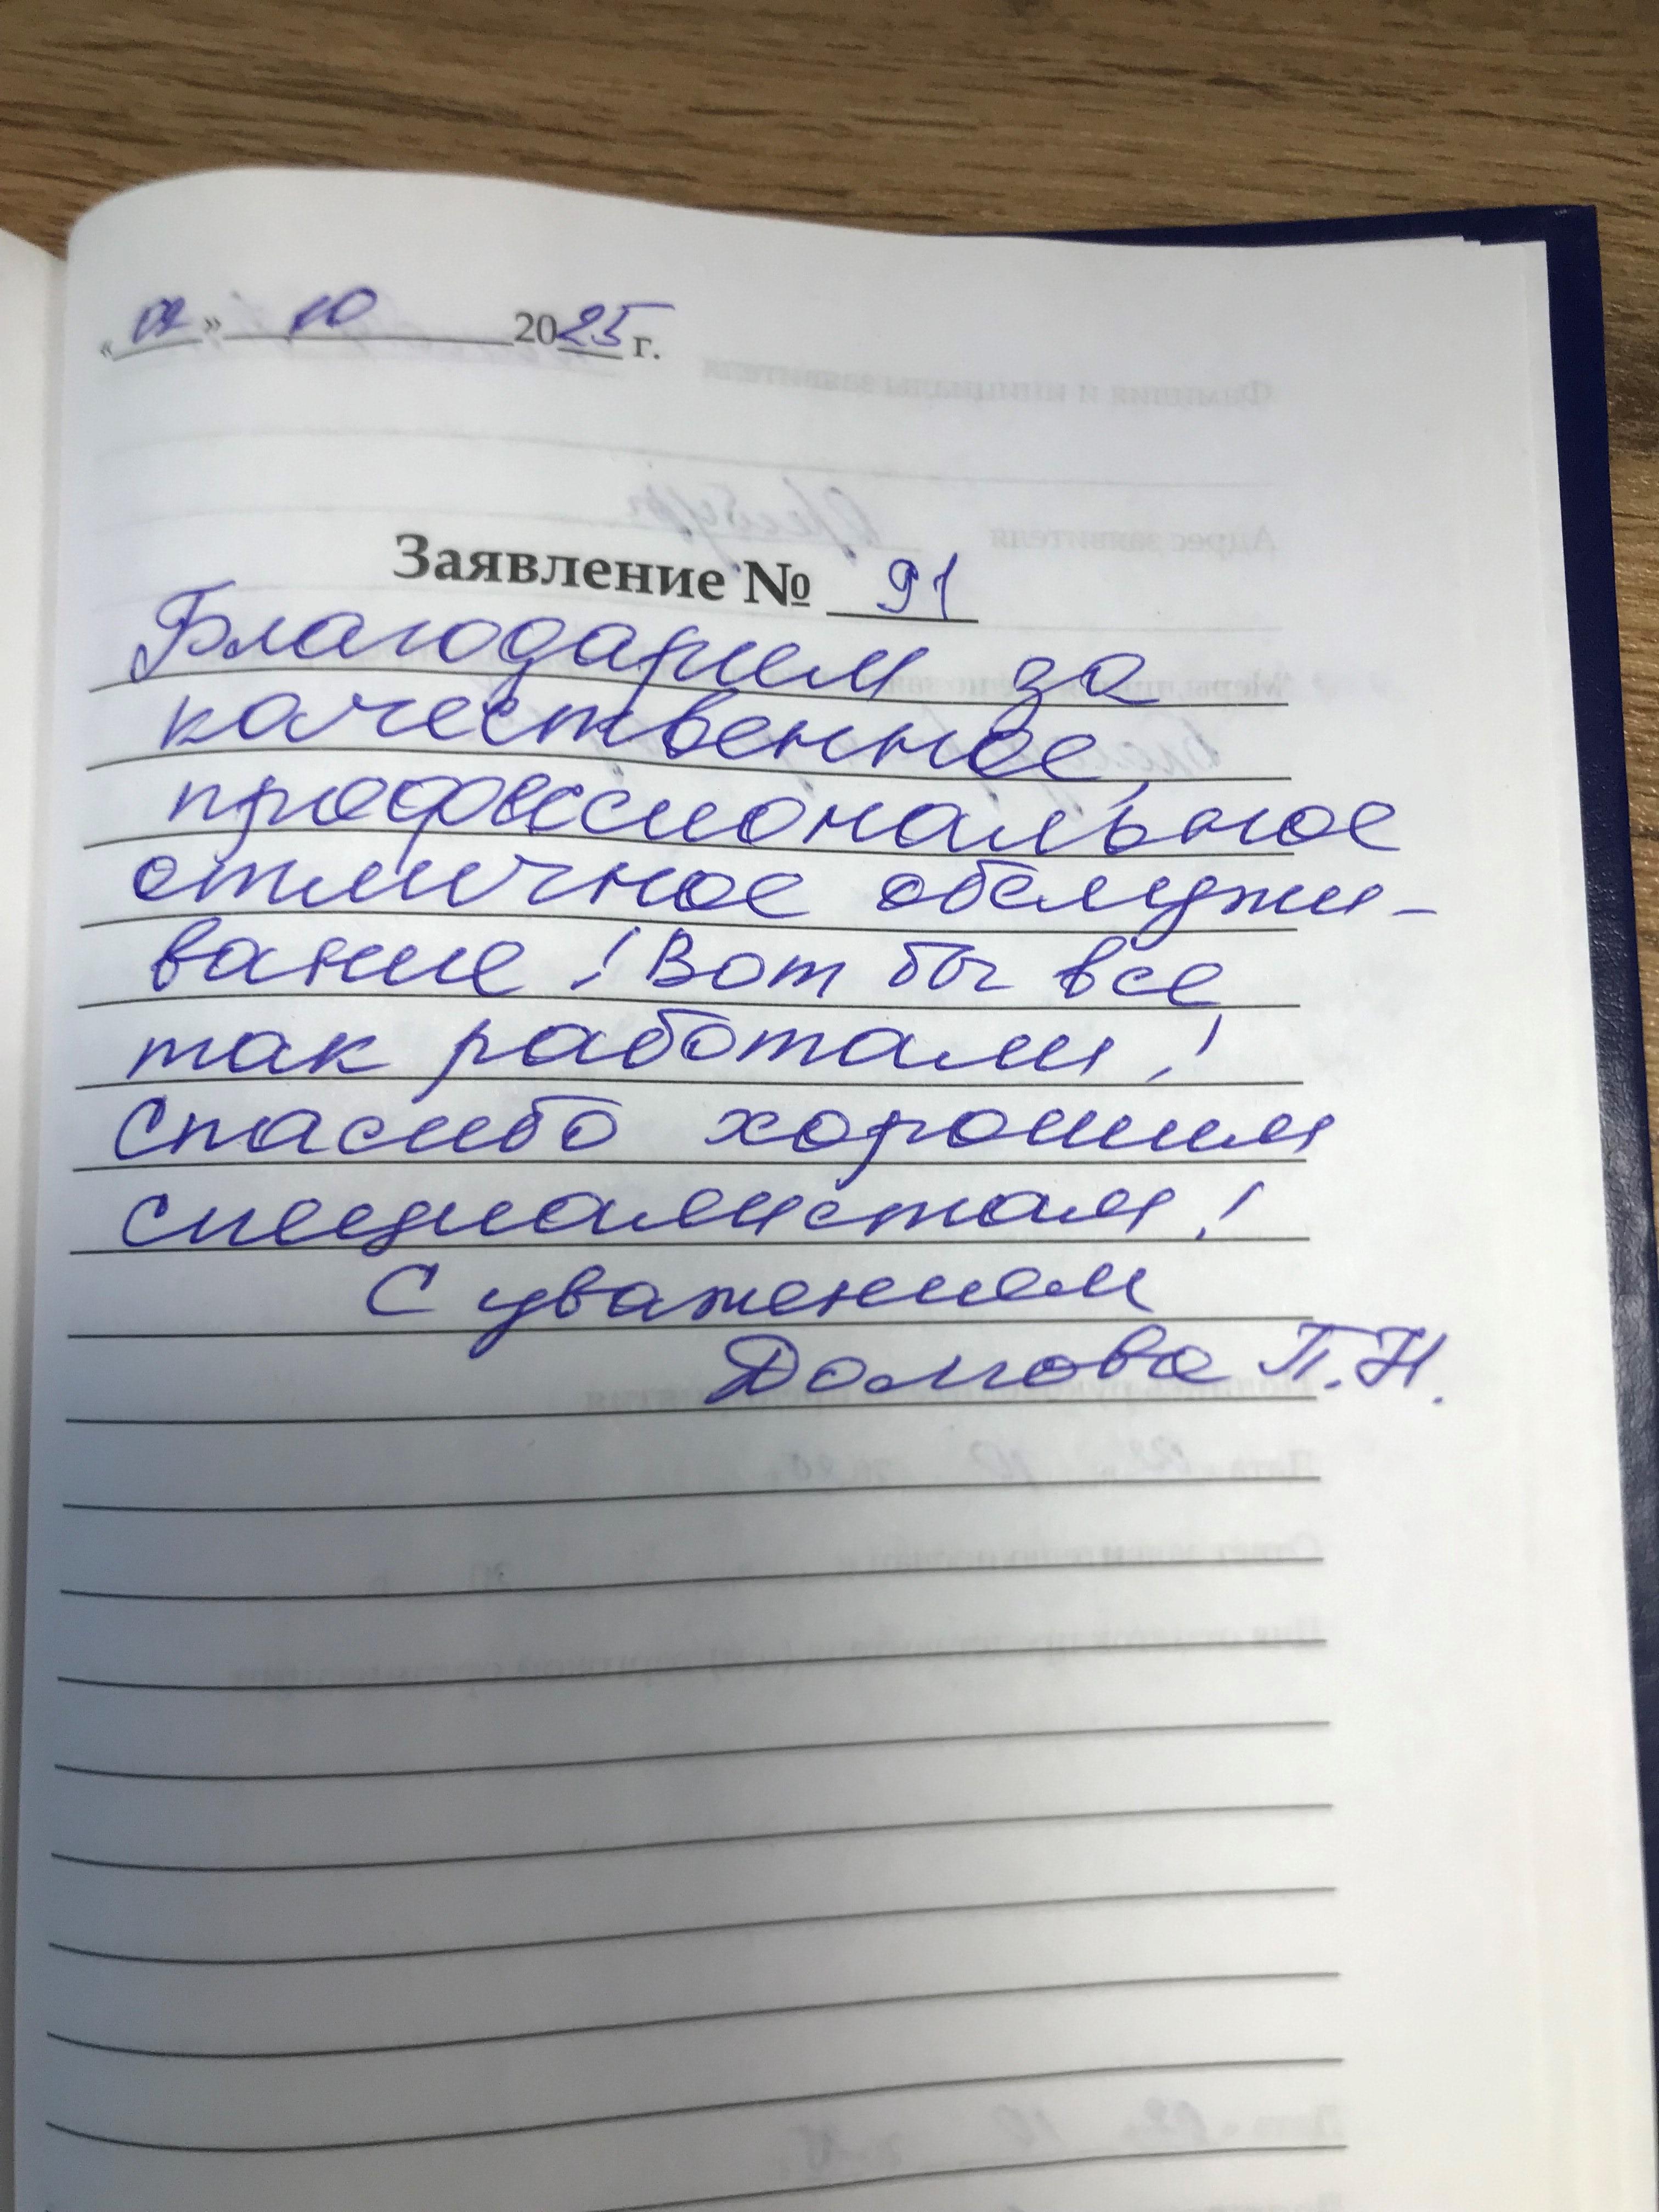 «02» 10 2025 г.
Заявление № 91
Благодарим за
качественное,
профессиональное
отличное обслужи-
вание! Вот бы все
так работали!
Спасибо хорошим
специалистам!
С уважением
Долгова П.Н.